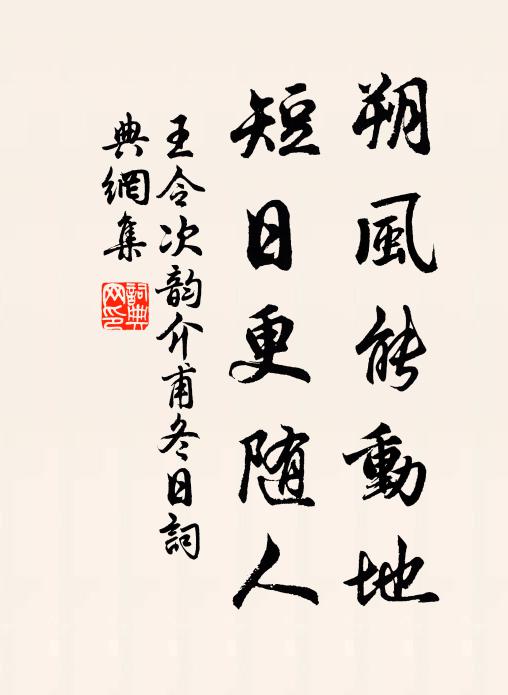 朔風能動地
短日更随人
王令次韵介甫冬日詞
典網集
詞典网印